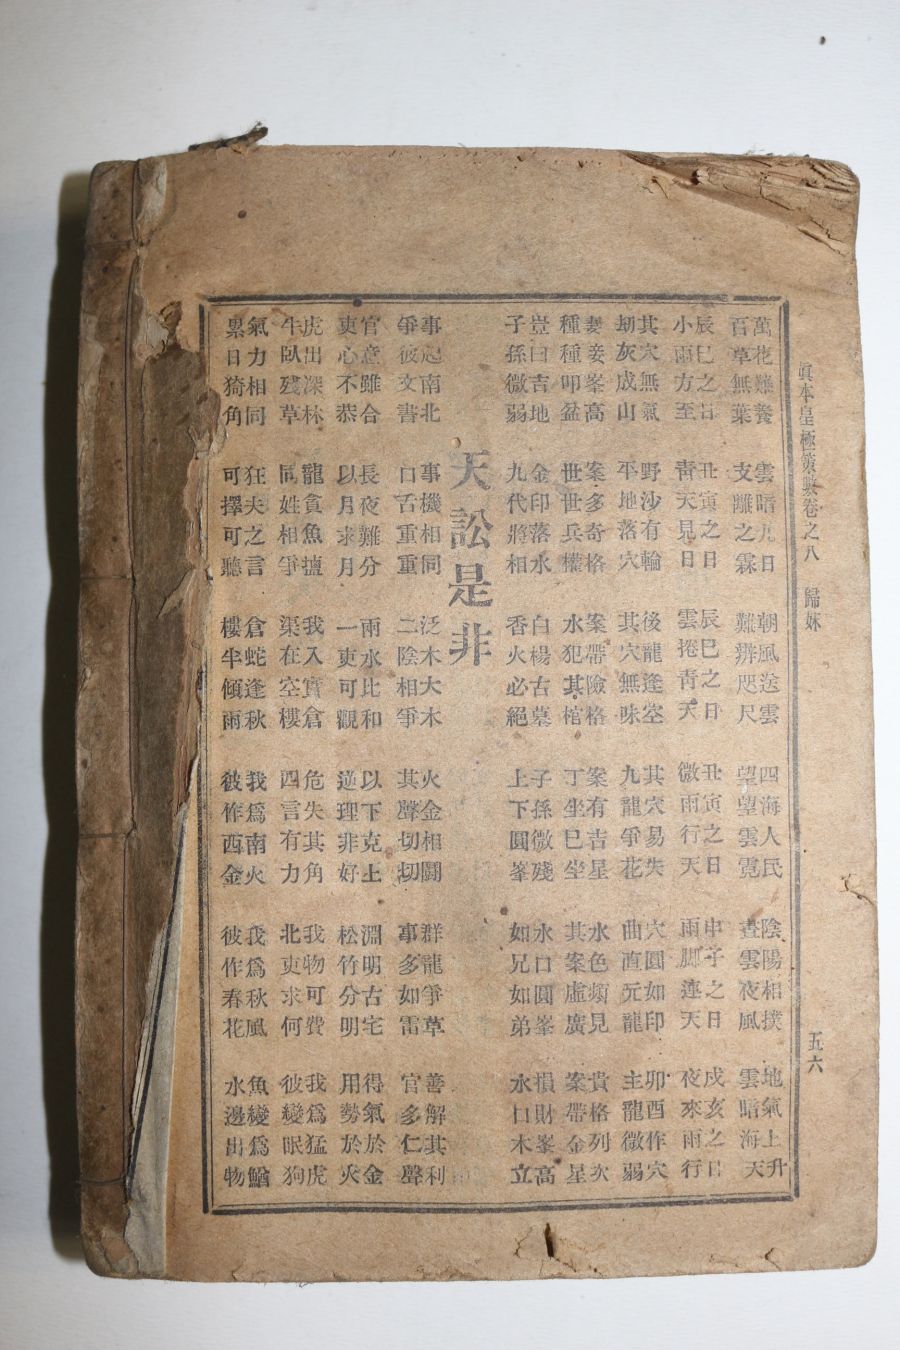 眞本皇極策數卷之八 歸妹 五六
萬花難養 雲暗九日 朝風送雲 四海人民 陰陽相撲 地氣上升
百草無葉 支離之霖 難辨咫尺 望望雲霓 晝雲夜風 雲暗海天
辰巳之日 丑寅之日 辰巳之日 丑寅之日 申子之日 戌亥之日
小雨方至 靑天見日 雲捲靑天 微雨行天 雨脚連天 夜來雨行
其穴無氣 野沙有輪 後龍逢空 其穴易失 穴圓如印 卯酉作穴
刼灰成山 平地落穴 其穴無味 九龍爭花 曲直元龍 主龍微弱
妻妾峯高 案多奇格 案帶險格 案有吉星 水色頻見 貴格列次
種種叩盆 世世兵權 水犯其棺 丁坐巳坐 其案虛廣 案帶金星
豈曰吉地 金印落水 白楊古墓 子孫微殘 水口圓峯 損財峯高
子孫微弱 九代將相 香火必絕 上下圓峯 如兄如弟 水口木立
天訟是非
事起南北 事機相同 泛木大木 火金相鬪 群龍爭草 善解其利
爭彼文書 口舌重重 二陰相爭 其聲切切 事多如雷 官多仁聲
官意雖合 長夜難分 雨水比和 以下克上 淵明古宅 得氣於金
吏心不恭 以月求月 一吏可觀 逆理非好 松竹分明 用勢於火
虎出深林 龍貪魚塩 我入實倉 危失其角 我物可費 我爲猛虎
牛臥殘草 同姓相爭 渠在空樓 四言有力 北吏求何 彼變眠狗
氣力相同 狂夫之言 倉蛇逢秋 我爲南火 我爲秋風 魚變爲鰌
累日猗角 可擇可聽 樓半傾雨 彼作西金 彼作春花 水邊出物